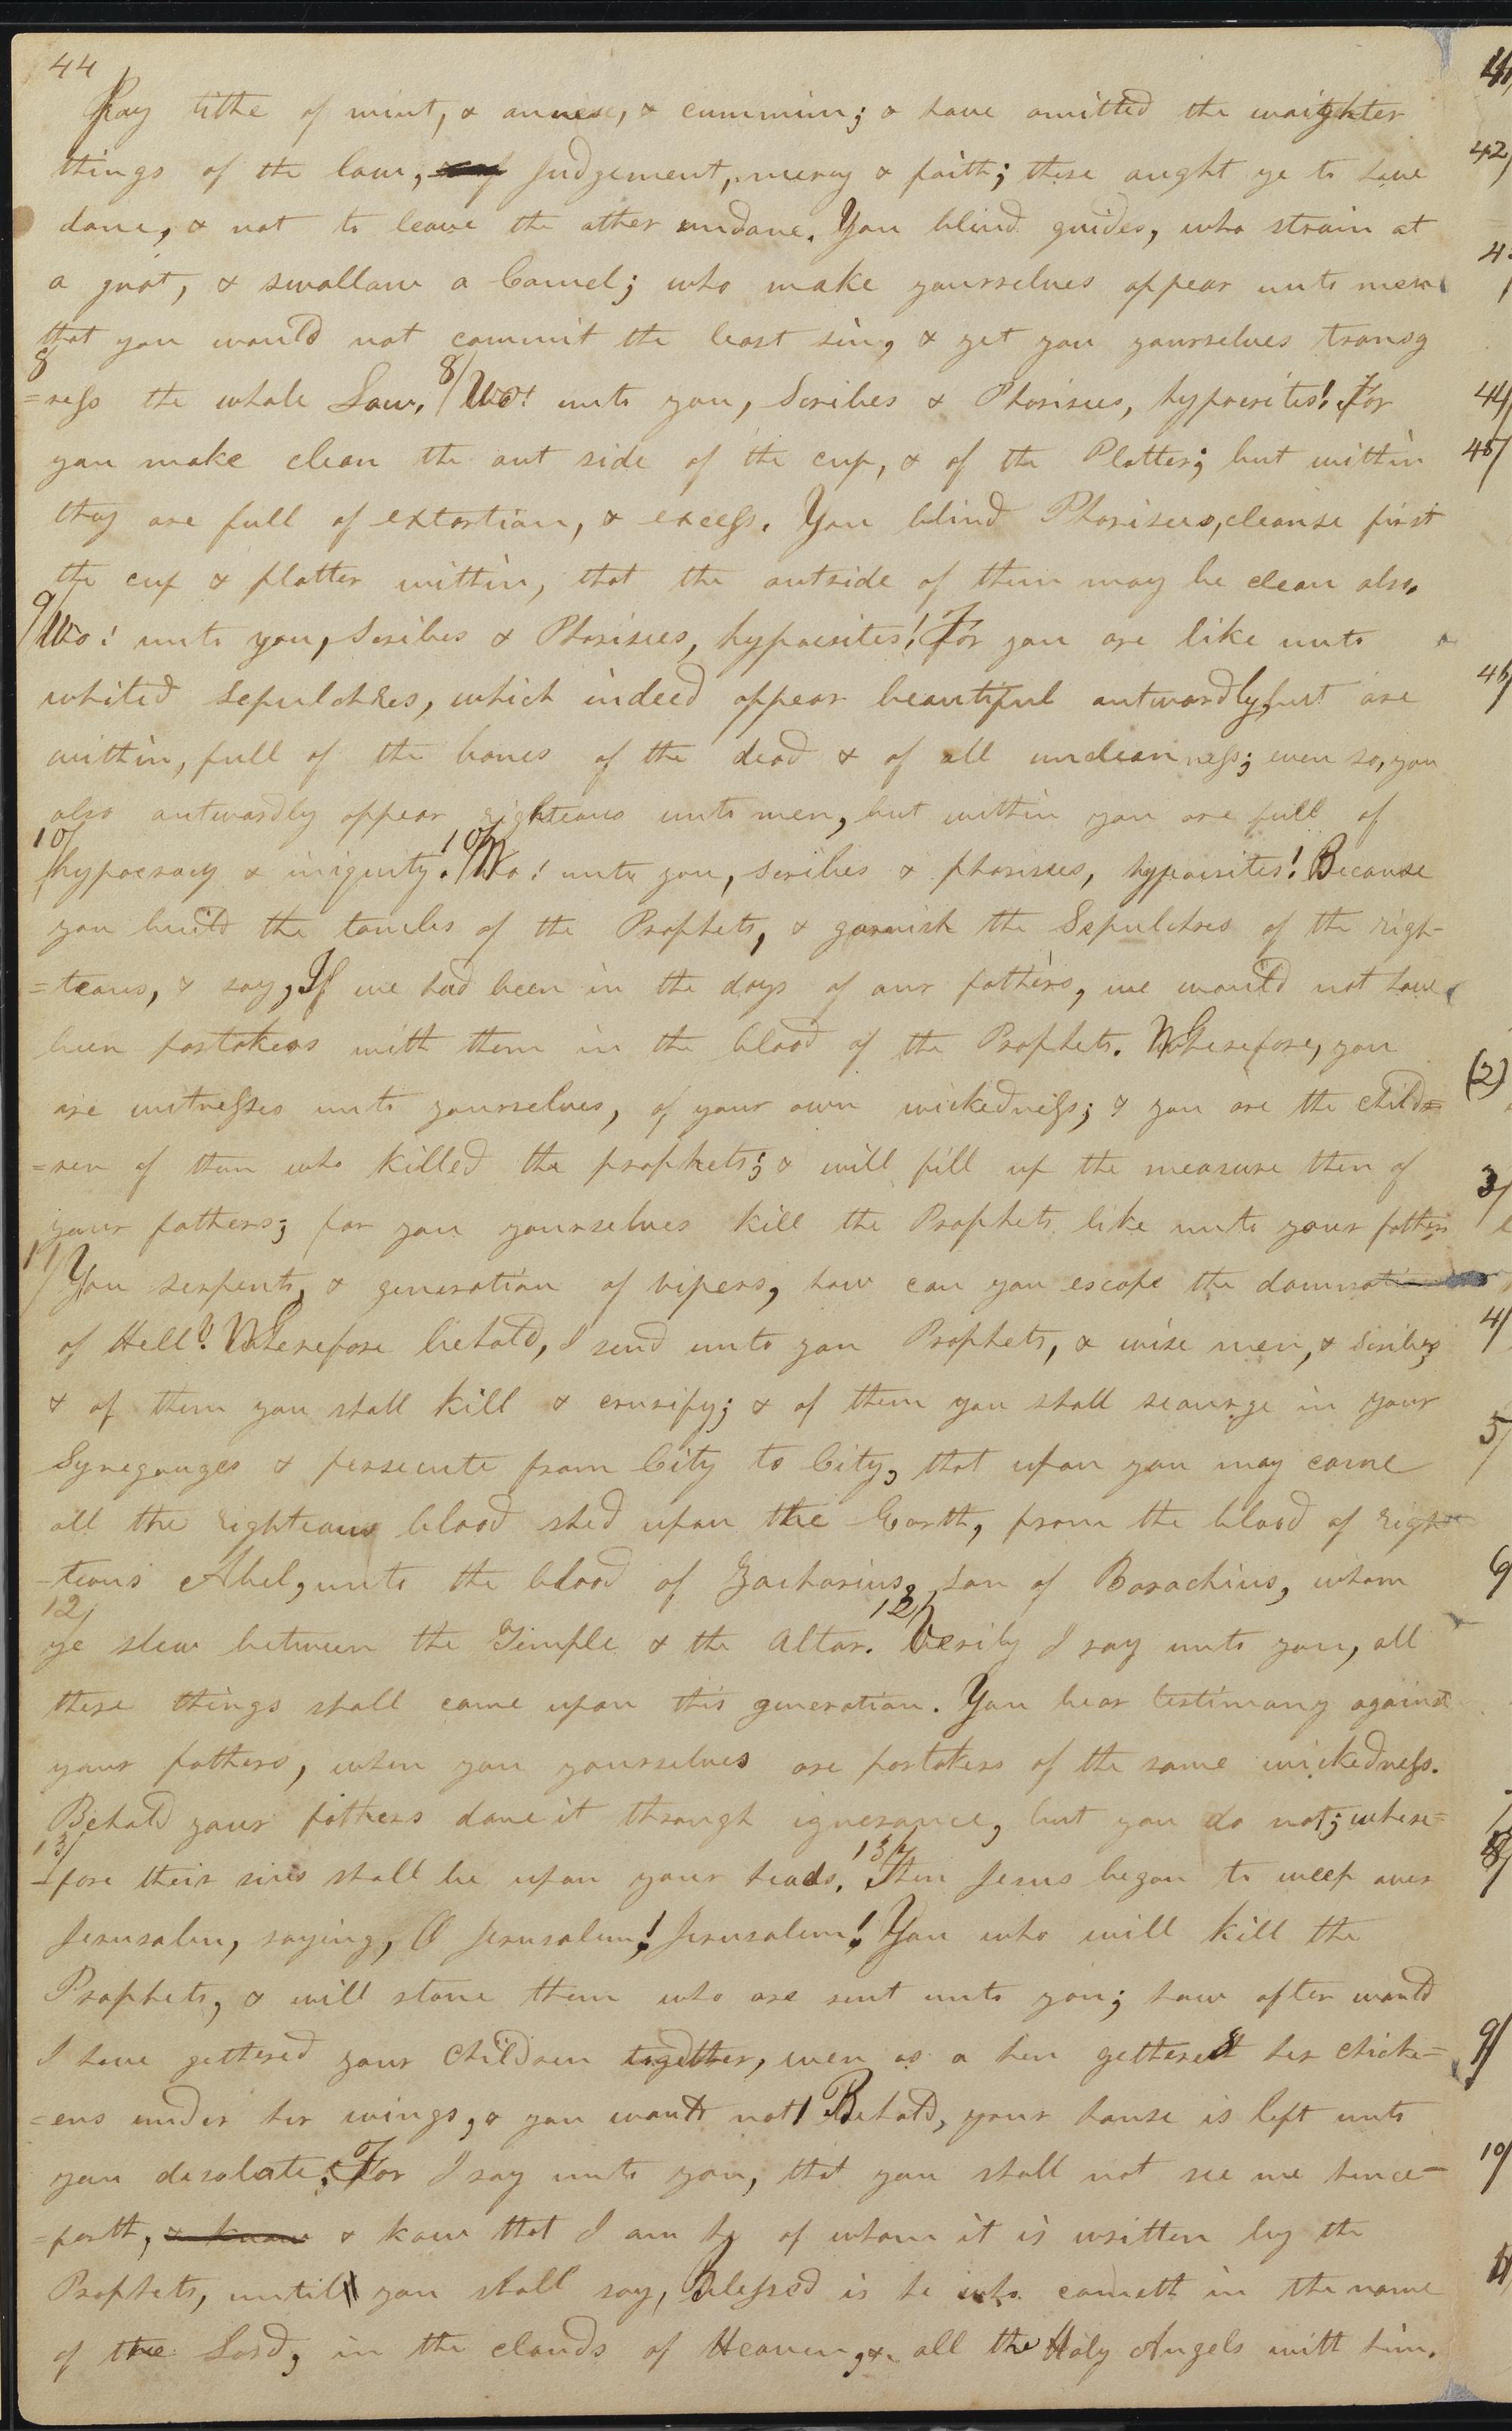 44
Pay tithe of mint, & annese, & cummin; & have omitted the waighter
things of the law; Judgement, mercy & faith; these ought ye to have
done, & not to leave the other undone. You blind guides, who strain at
a gnat, & swallow a Camel; who make yourselves appear unto men
that you would not commit the least sin, & yet you yourselves transg
8
=ress the whole Law. 8/ Wo! unto you, Scribes & Pharisees, hypocrites! For
you make clean the out side of the cup, & of the Platter; but within
they are full of extortion, & excess. You blind Pharisees, cleanse first
the cup & platter within, that the outside of them may be clean also.
9/ Wo! unto you, Scribes & Pharisees, hypocrites! For you are like unto
whited Sepulchres, which indeed appear beautiful outwardly, but are
within, full of the bones of the dead & of all uncleanness; even so, you
also outwardly appear righteous unto men, but within you are full of
10/
hypocracy & iniquity. 10/ Wo! unto you, scribes & pharisees, hypocrites! Because
you build the tombs of the Prophets, & garnish the Sepulchres of the righ-
=teous, & say, If we had been in the days of our fathers, we would not have
been partakers with them in the blood of the Prophets. Wherefore, you
are witnesses unto yourselves, of your own wickedness; & you are the child=
=ren of them who killed the prophets; & will fill up the measure then of
your fathers; for you yourselves kill the Prophets like unto your fathers
11/ You serpents, & generation of vipers, how can you escape the damnation
of Hell? Wherefore behold, I send unto you Prophets, & wise men, & scribes;
& of them you shall kill & crusify; & of them you shall scourge in your
Synegouges & persecute from City to City, that upon you may come
all the righteous blood shed upon the Earth, from the blood of righ
=teous Abel, unto the blood of Zacharius, son of Barachius, whom
12/
ye slew between the Temple & the Altar. 12/ Verily I say unto you, all
these things shall come upon this generation. You bear testimony against
your fathers, when you yourselves are partakers of the same wickedness.
Behold your fathers done it through ignorance, but you do not; where=
13/
=fore their sins shall be upon your heads. 13/ Then Jesus began to weep over
Jerusalem, saying, O Jerusalem! Jerusalem! You who will kill the
Prophets, & will stone them who are sent unto you; how often would
I have gethered your Children together, even as a hen gethereth her chick=
=ens under her wings, & you would not! Behold, your house is left unto
you desolate; For I say unto you, that you shall not see me hence=
=forth, & know & know that I am he of whom it is written by the
Prophets, until you shall say, Blessed is he who cometh in the name
of the Lord, in the clouds of Heaven, & all the Holy Angels with him.
42/
44/
45/
46/
(2)
3/
4/
5/
6
8/
9/
10/
11